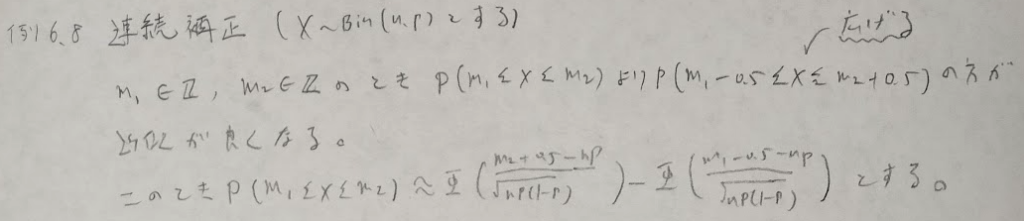 例 6.8 連続補正 (X~Bin(n.p)とする)
広げる
m₁∈ℤ, m₂∈ℤのとき P(m₁≤X≤m₂)よりP(m₁-0.5≤X≤m₂+0.5)の方が
近似が良くなる。
このとき P(m₁≤X≤m₂)≈Φ((m₂+0.5-np)/√(np(1-p)))-Φ((m₁-0.5-np)/√(np(1-p)))とする。